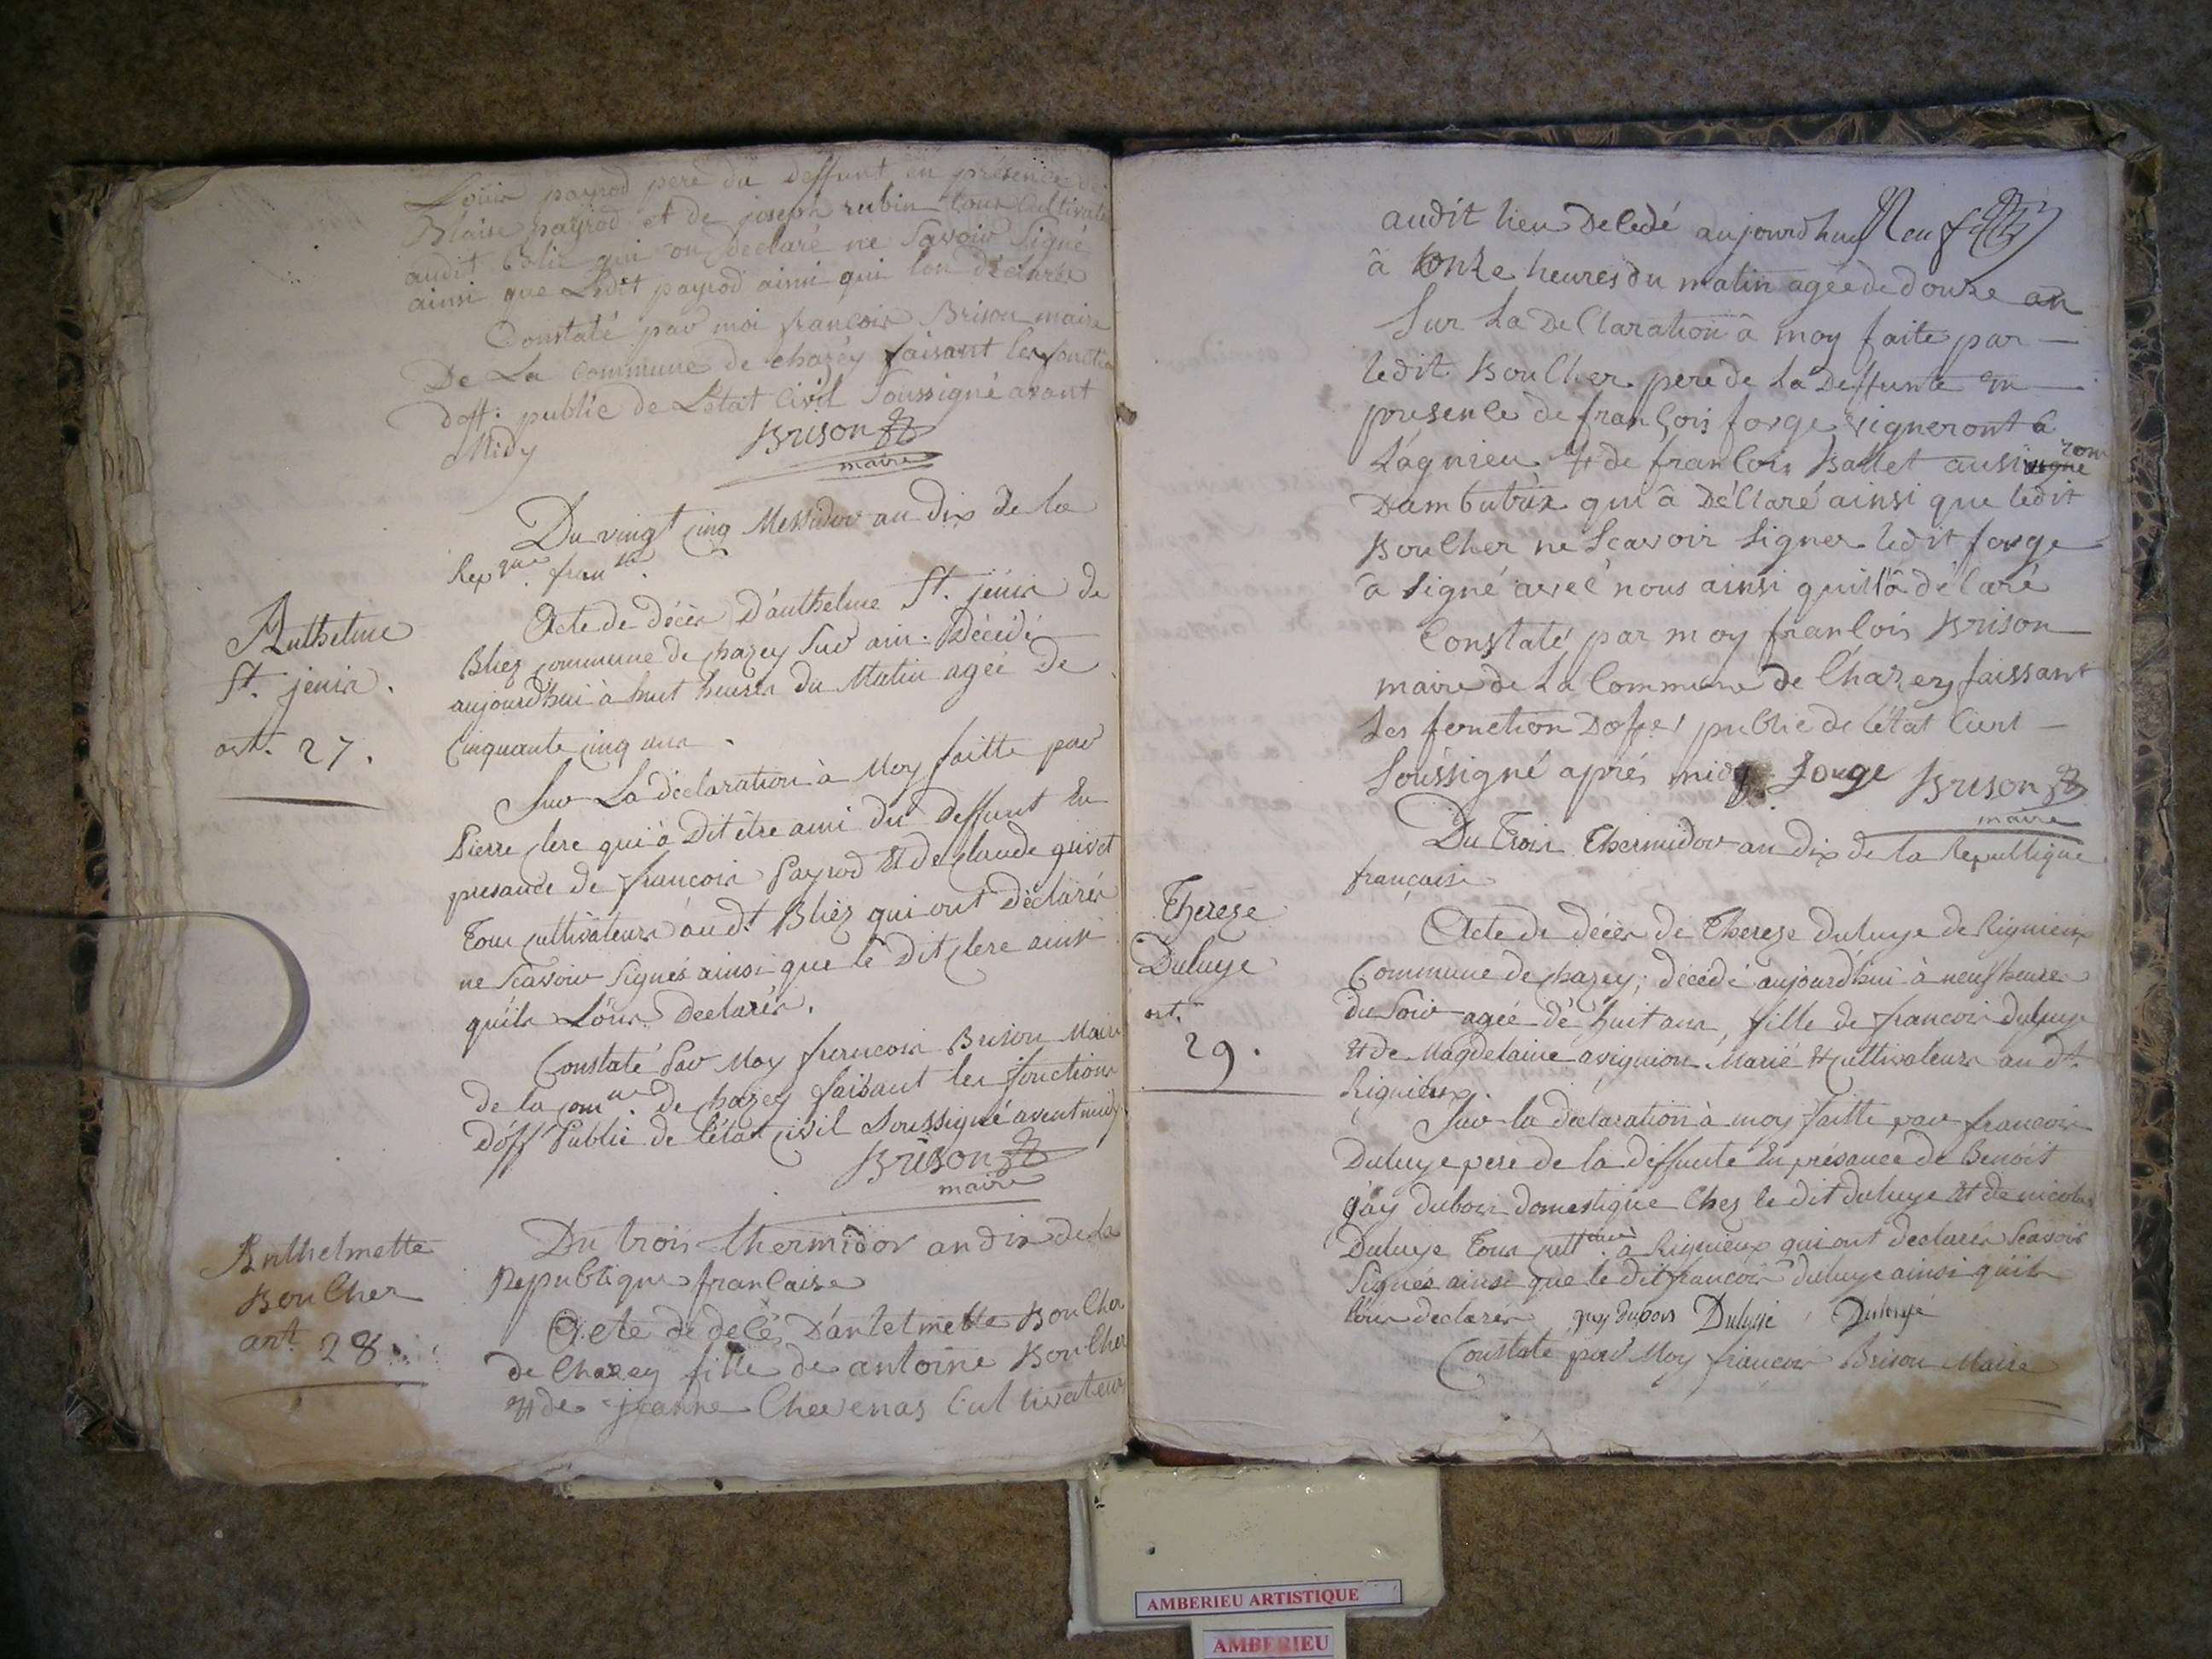 Louis payrod pere du deffunt en présence de
Blaise payrod et de joseph rubin tous Cultivate
audit Blie qui on declaré ne Savoir Signé
ainsi que Ledit payrod ainsi qui lon déclarée
Constaté par moi francois Brison maire
De La Commune de chazey faisant les fonctio
doff. public de Létat Civil Soussigné avant
Midy
Brison
maire
Du vingt cinq Messidor an dix de la
Repque. franse.
Anthelme
St. jenis.
art. 27.
Acte de décès D'anthelme St. jenis de
Bliez commune de chazey Sur ain. Décédé
aujourdhui à huit heures du Matin ageé De
Cinquante cinq ans.
Sur La déclaration à Moy faitte par
Pierre clere qui à Dit être ami du Deffunt En
presance de francois Payrod Et de claude grivet
Tous cultivateurs au dt. Bliez qui ont Déclarés
ne Scavoir Signés ainsi que le Dit clere ainsi
quils Lons Declarés.
Constaté Par Moy francois Brison Maire
de la comne. de chazey faisant les fonctions
Doff Public de létat civil Soussigné avent midy
Brison
maire
Anthelmette
Boucher
art. 28.
Du trois thermidor an dix de la
Republique francaise
Acte de decés D'antelmette Boucher
de Chazey fille de antoine Boucher
Et de jeanne Chevenas Cultivateur
audit lieu Decedé aujourdhuy Neuf
à onze heures du matin agée de douze an
Sur La Declaration à moy faite par
ledit Boucher pere de La Deffunte En
presence de françois forge vigneront à
Lagnieu Et de francois Ballet ausi vigne
ron
Dambutrix qui à Déclaré ainsi que ledit
Boucher ne Scavoir Signer ledit forge
à signé avec nous ainsi quill à délaré
Constaté par moy francois Brison
maire de La Commune de Chazey faissant
Les fonction Doffer public de létat Civil
Soussigné aprés midy forge Brison
maire
Du Trois Thermidor an dix de la Republique
française
Thereze
Duluye
art.
29.
Acte de décès de Thereze Duluye de Rignieux
Commune de chazey; décédé aujourd'hui à neuf heures
du Soir ageé de huit ans, fille de francois Duluye
Et de Magdelaine avignion Marié Et cultivateurs au dt.
Rignieux.
Sur la declaration à moy faitte par francois
Duluye pere de la deffunte En présance de Benoit
gay dubois domestique Chez le dit duluye Et de nicolas
Duluye Tous culteurs à Rignieux qui ont declarés Scavoir
Signés ainsi que le dit francois duluye ainsi quils
lons declarés gay dubois Duluye Duluye
Constaté par Moy francois Brison Maire
AMBERIEU ARTISTIQUE
AMBERIEU